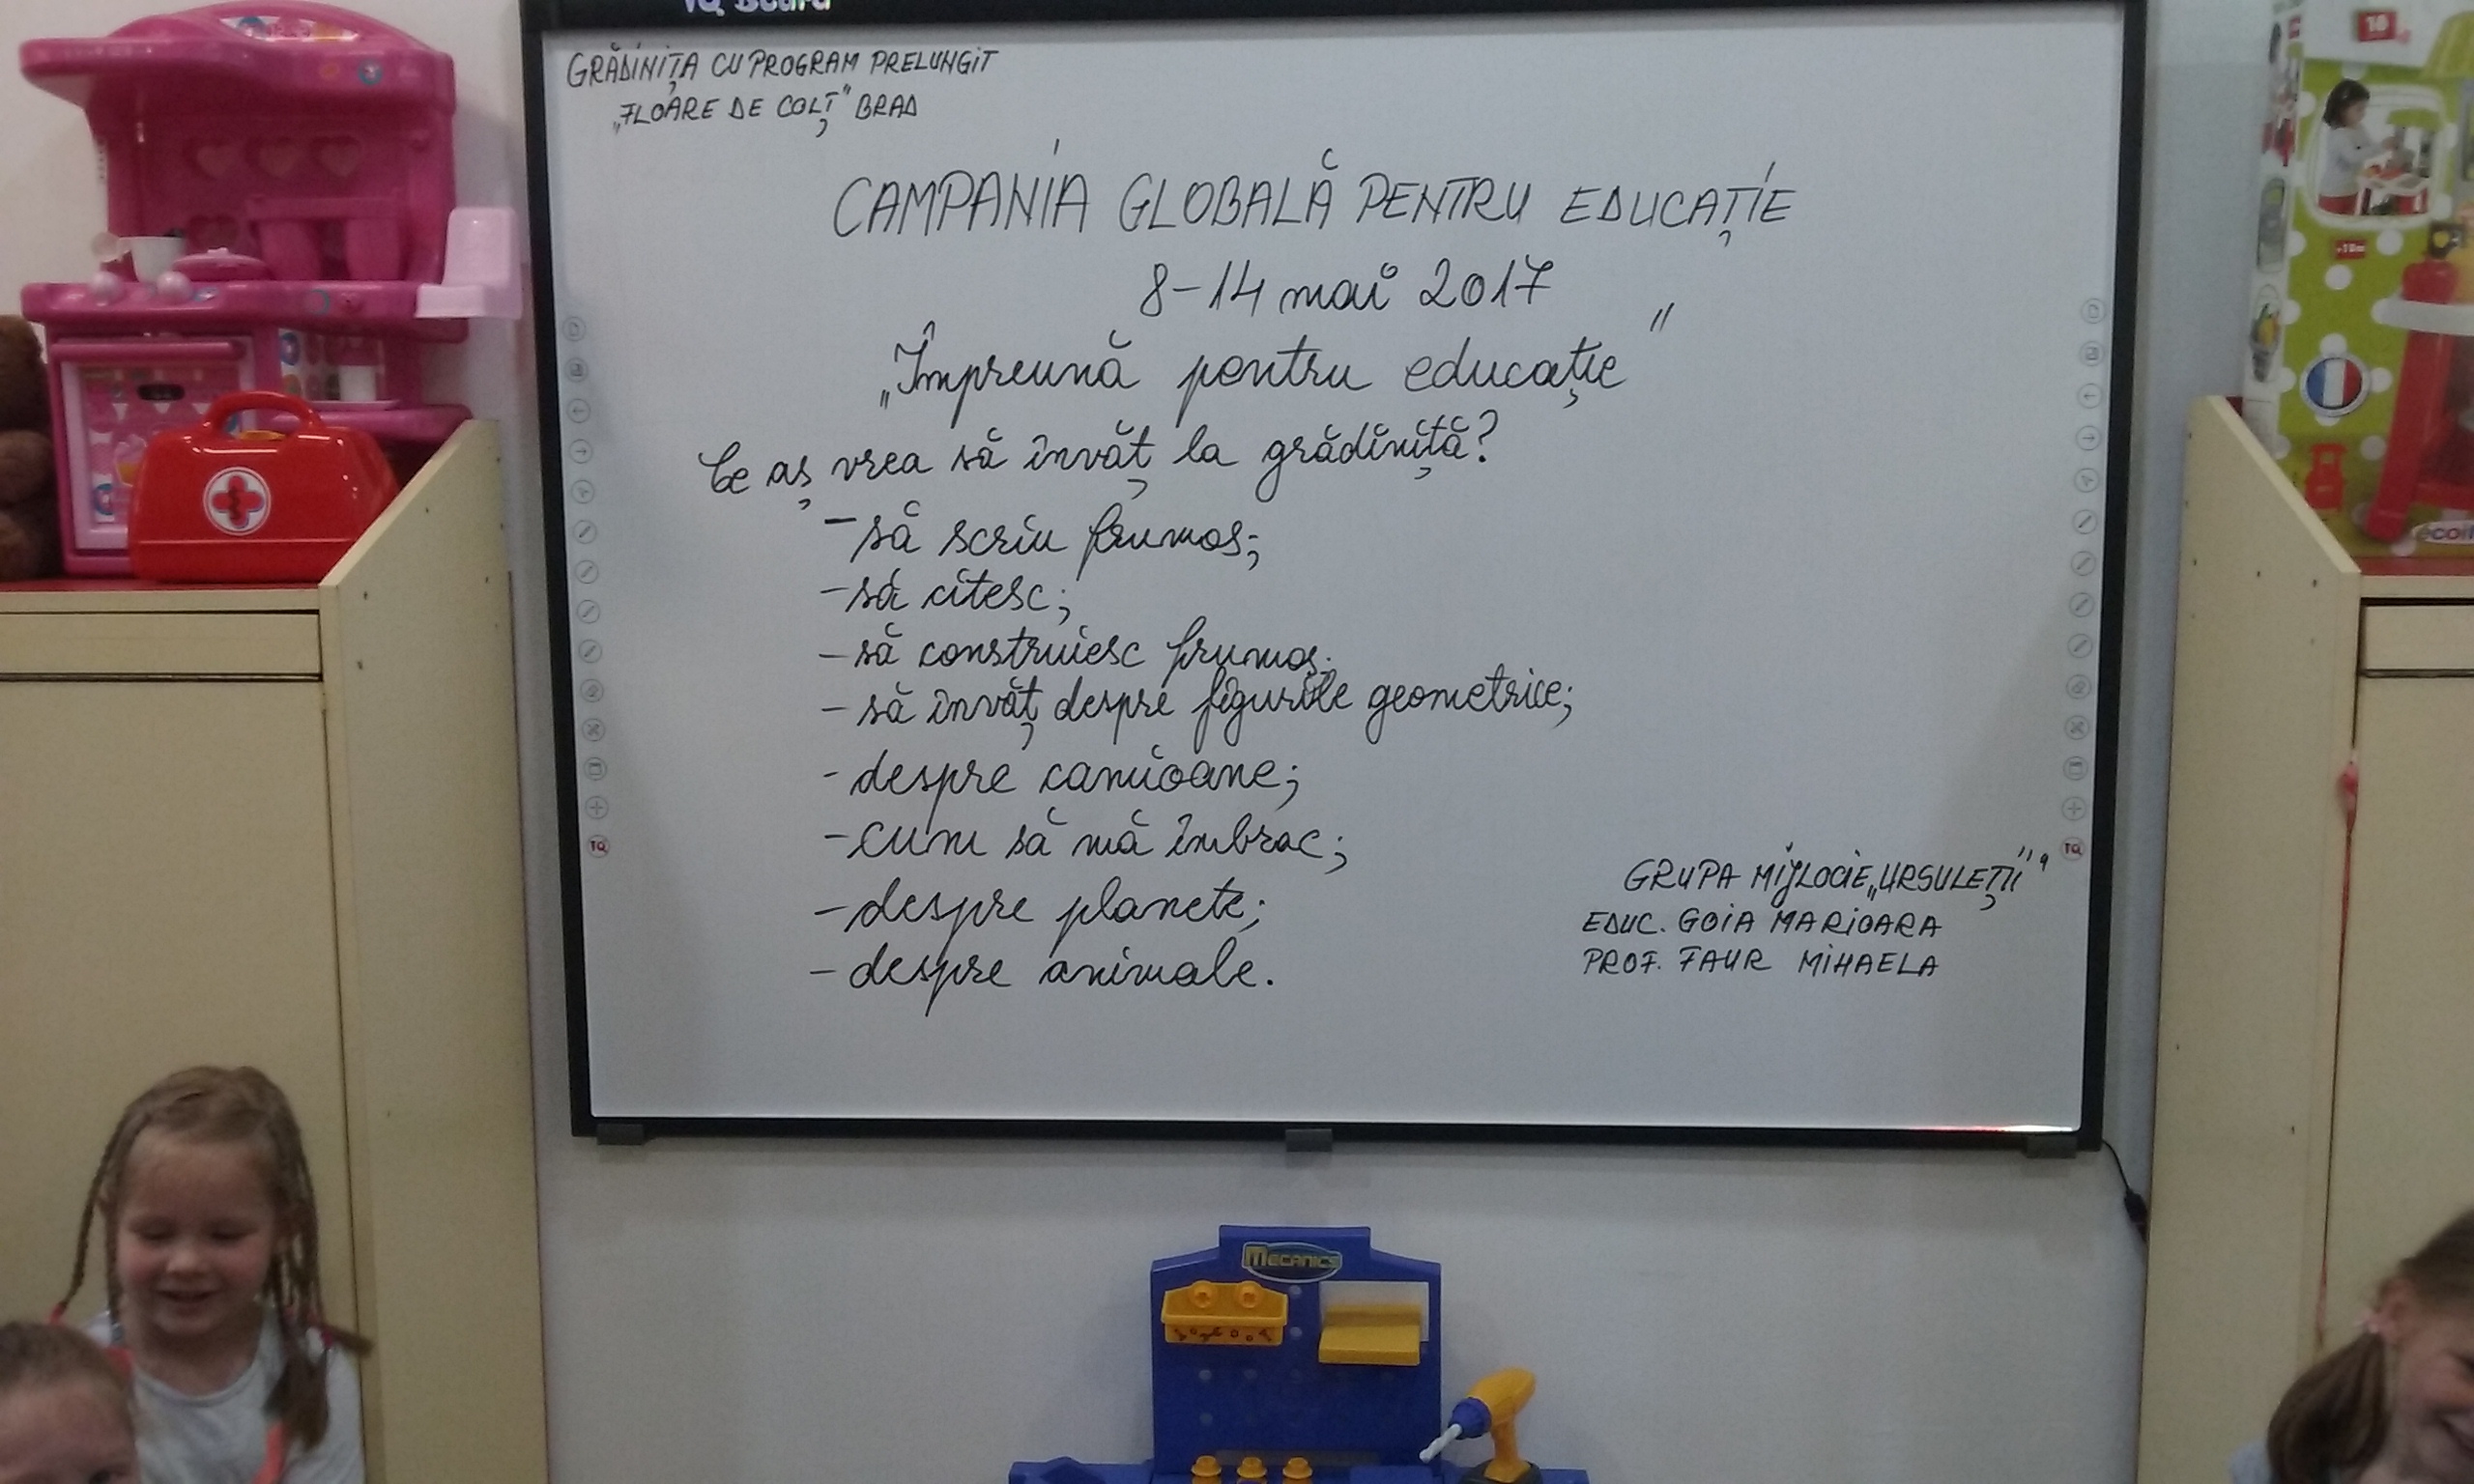 IQ Board
GRĂDINIȚA CU PROGRAM PRELUNGIT
„FLOARE DE COLȚ" BRAD
CAMPANIA GLOBALĂ PENTRU EDUCAȚIE
8-14 mai 2017
„Împreună pentru educație"
Ce aș vrea să învăț la grădiniță?
- să scriu frumos;
- să citesc;
- să construiesc frumos;
- să învăț despre figurile geometrice;
- despre camioane;
- cum să mă îmbrac;
- despre planete;
- despre animale.
GRUPA MIJLOCIE „URSULEȚII"
EDUC. GOIA MARIOARA
PROF. FAUR MIHAELA
IQ
IQ
MECANICS
10